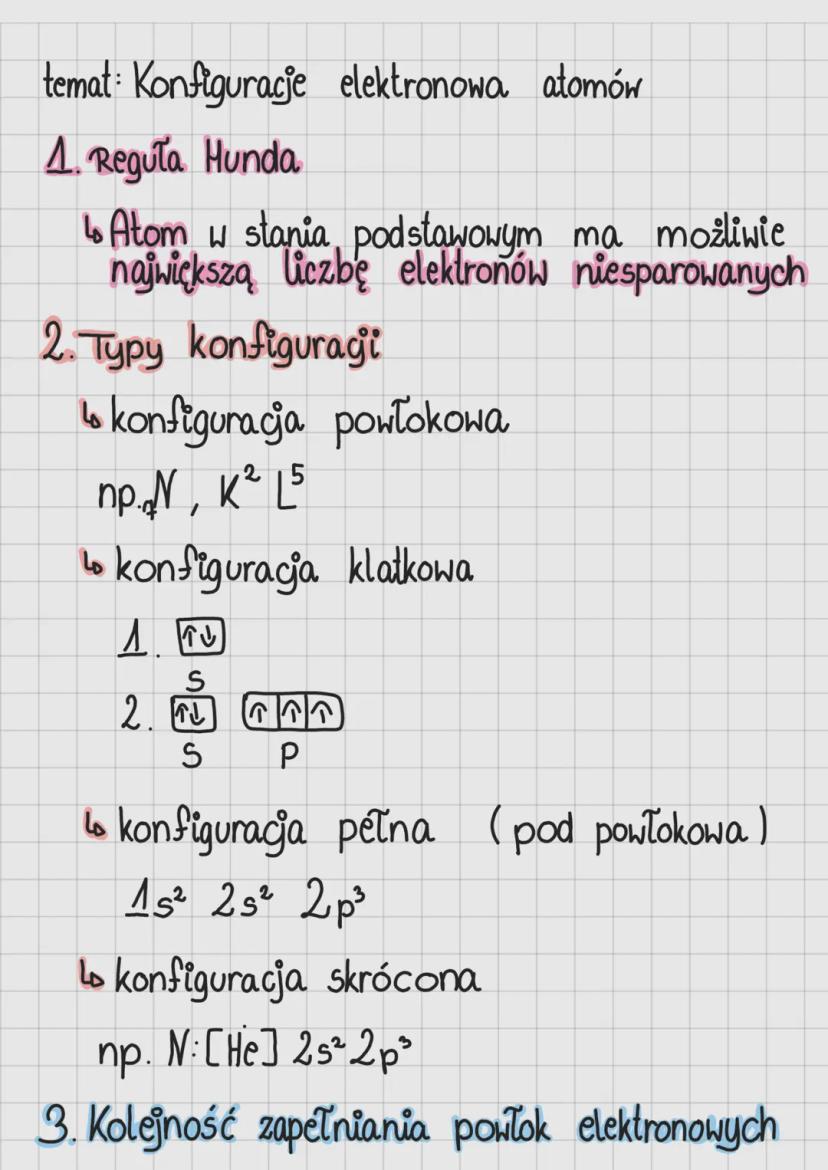 temat: Konfiguracje elektronowa atomów
1. Reguła Hunda
↳ Atom w stania podstawowym ma możliwie
największą liczbę elektronów niesparowanych
2. Typy konfiguracji
↳ konfiguracja powłokowa
np. ₇N , K² L⁵
↳ konfiguracja klatkowa
1. ↑↓
s
2. ↑↓ ↑ ↑ ↑
s p
↳ konfiguracja pełna (pod powłokowa)
1s² 2s² 2p³
↳ konfiguracja skrócona
np. N:[He] 2s² 2p³
3. Kolejność zapełniania powłok elektronowych